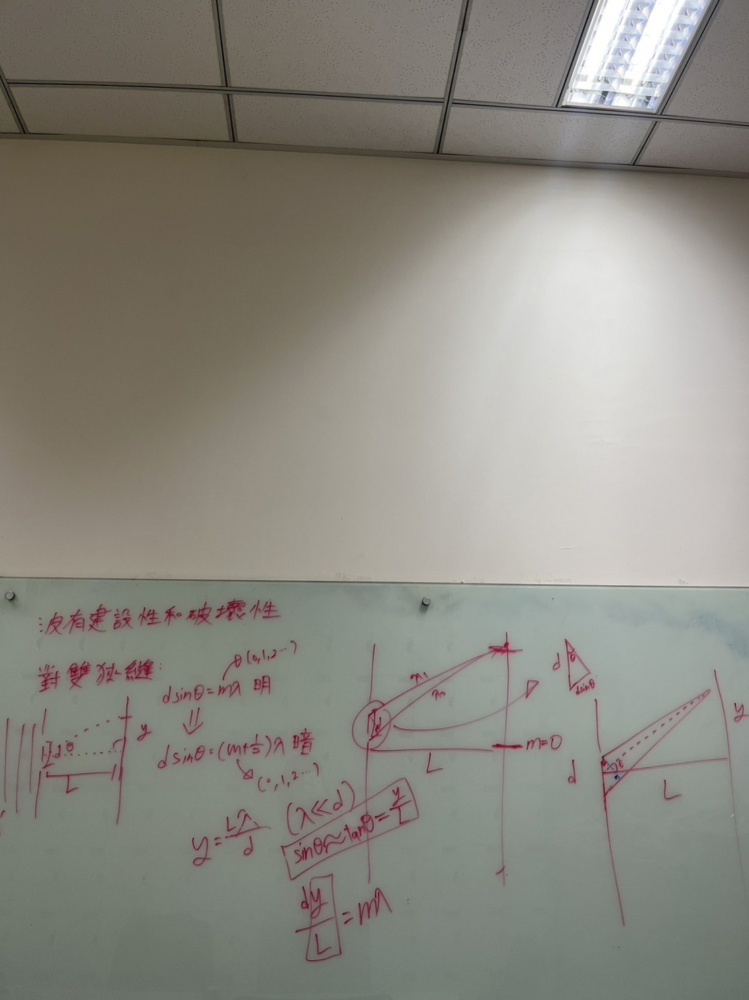 波有建設性和破壞性
對雙狹縫:
θ(0,1,2…)
dsinθ=mλ 明
⇓
dsinθ=(m+½)λ 暗
(0,1,2…)
d θ
y
L
y=Lλ/d (λ≪d)
sinθ≈tanθ=y/L
dy/L=mλ
d
L
m=0
d
θ
dsinθ
d
θ
L
y